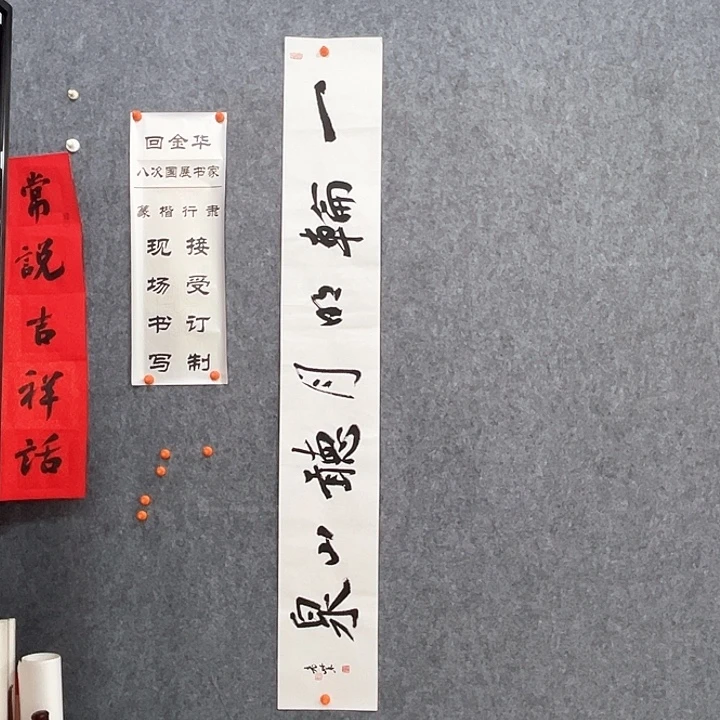 常說吉祥話
回金华
八次国展书家
篆楷行隶
接受订制
现场书写
一輪明月聽山泉